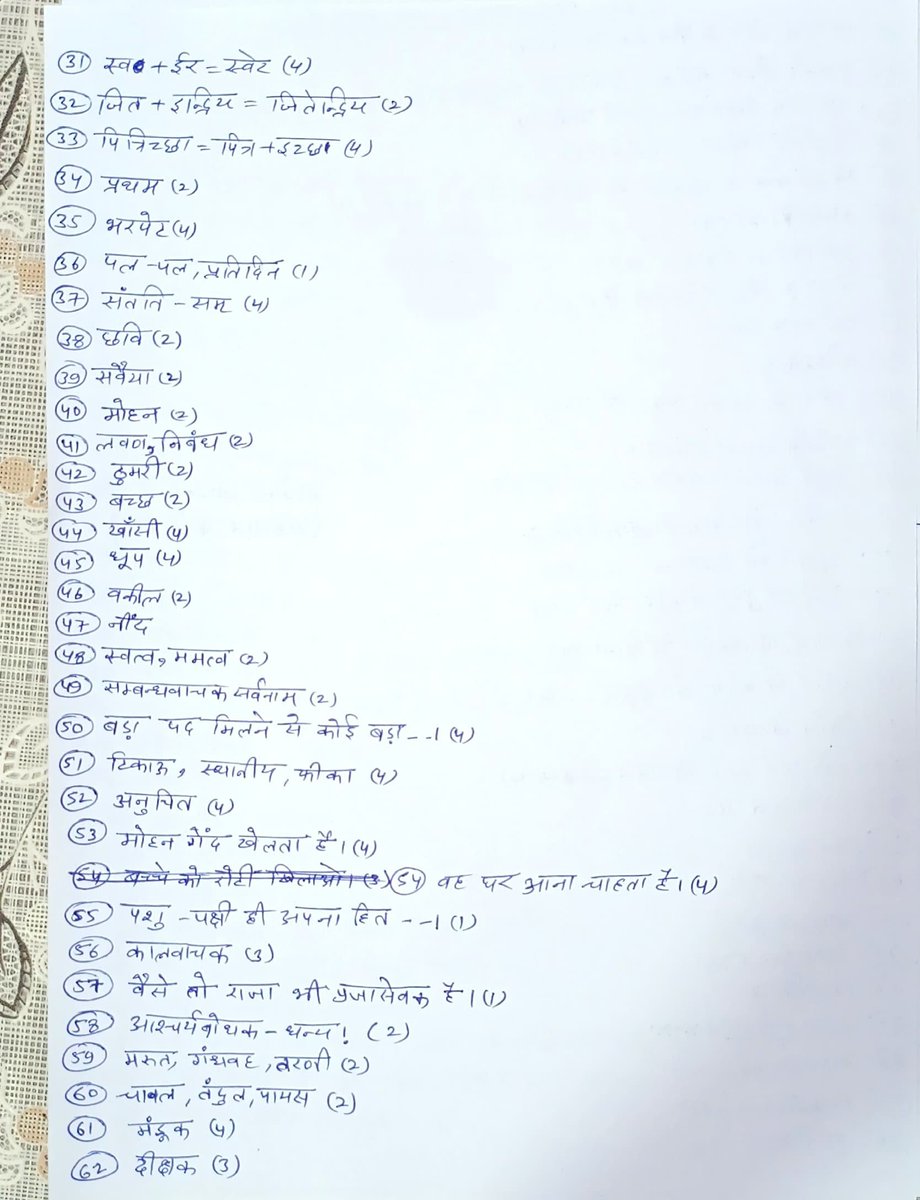 31 स्व + ईर = स्वेर (4)
32 जित + इन्द्रिय = जितेन्द्रिय (2)
33 पित्रिच्छा = पितृ + इच्छा (4)
34 प्रथम (2)
35 भरपेट (4)
36 पल-पल, प्रतिदिन (1)
37 संतति - सम् (4)
38 छवि (2)
39 सवैया (2)
40 मोहन (2)
41 लवण, निबंध (2)
42 ठुमरी (2)
43 बच्छ (2)
44 खाँसी (4)
45 धूप (4)
46 वकील (2)
47 नींद
48 स्वत्व, ममत्व (2)
49 सम्बन्धवाचक सर्वनाम (2)
50 बड़ा पद मिलने से कोई बड़ा - - । (4)
51 टिकाऊ, स्थानीय, फीका (4)
52 अनुचित (4)
53 मोहन गेंद खेलता है। (4)
54 बच्चे को रोटी खिलाओ। (3) 54 वह घर आना चाहता है। (4)
55 पशु-पक्षी ही अपना हित - - । (1)
56 कालवाचक (3)
57 वैसे तो राजा भी प्रजासेवक है। (1)
58 आश्चर्यबोधक - धन्य! (2)
59 मरुत, गंधवह, (2)
60 चावल, तंदुल, पायस (2)
61 मंडूक (4)
62 दीक्षक (3)